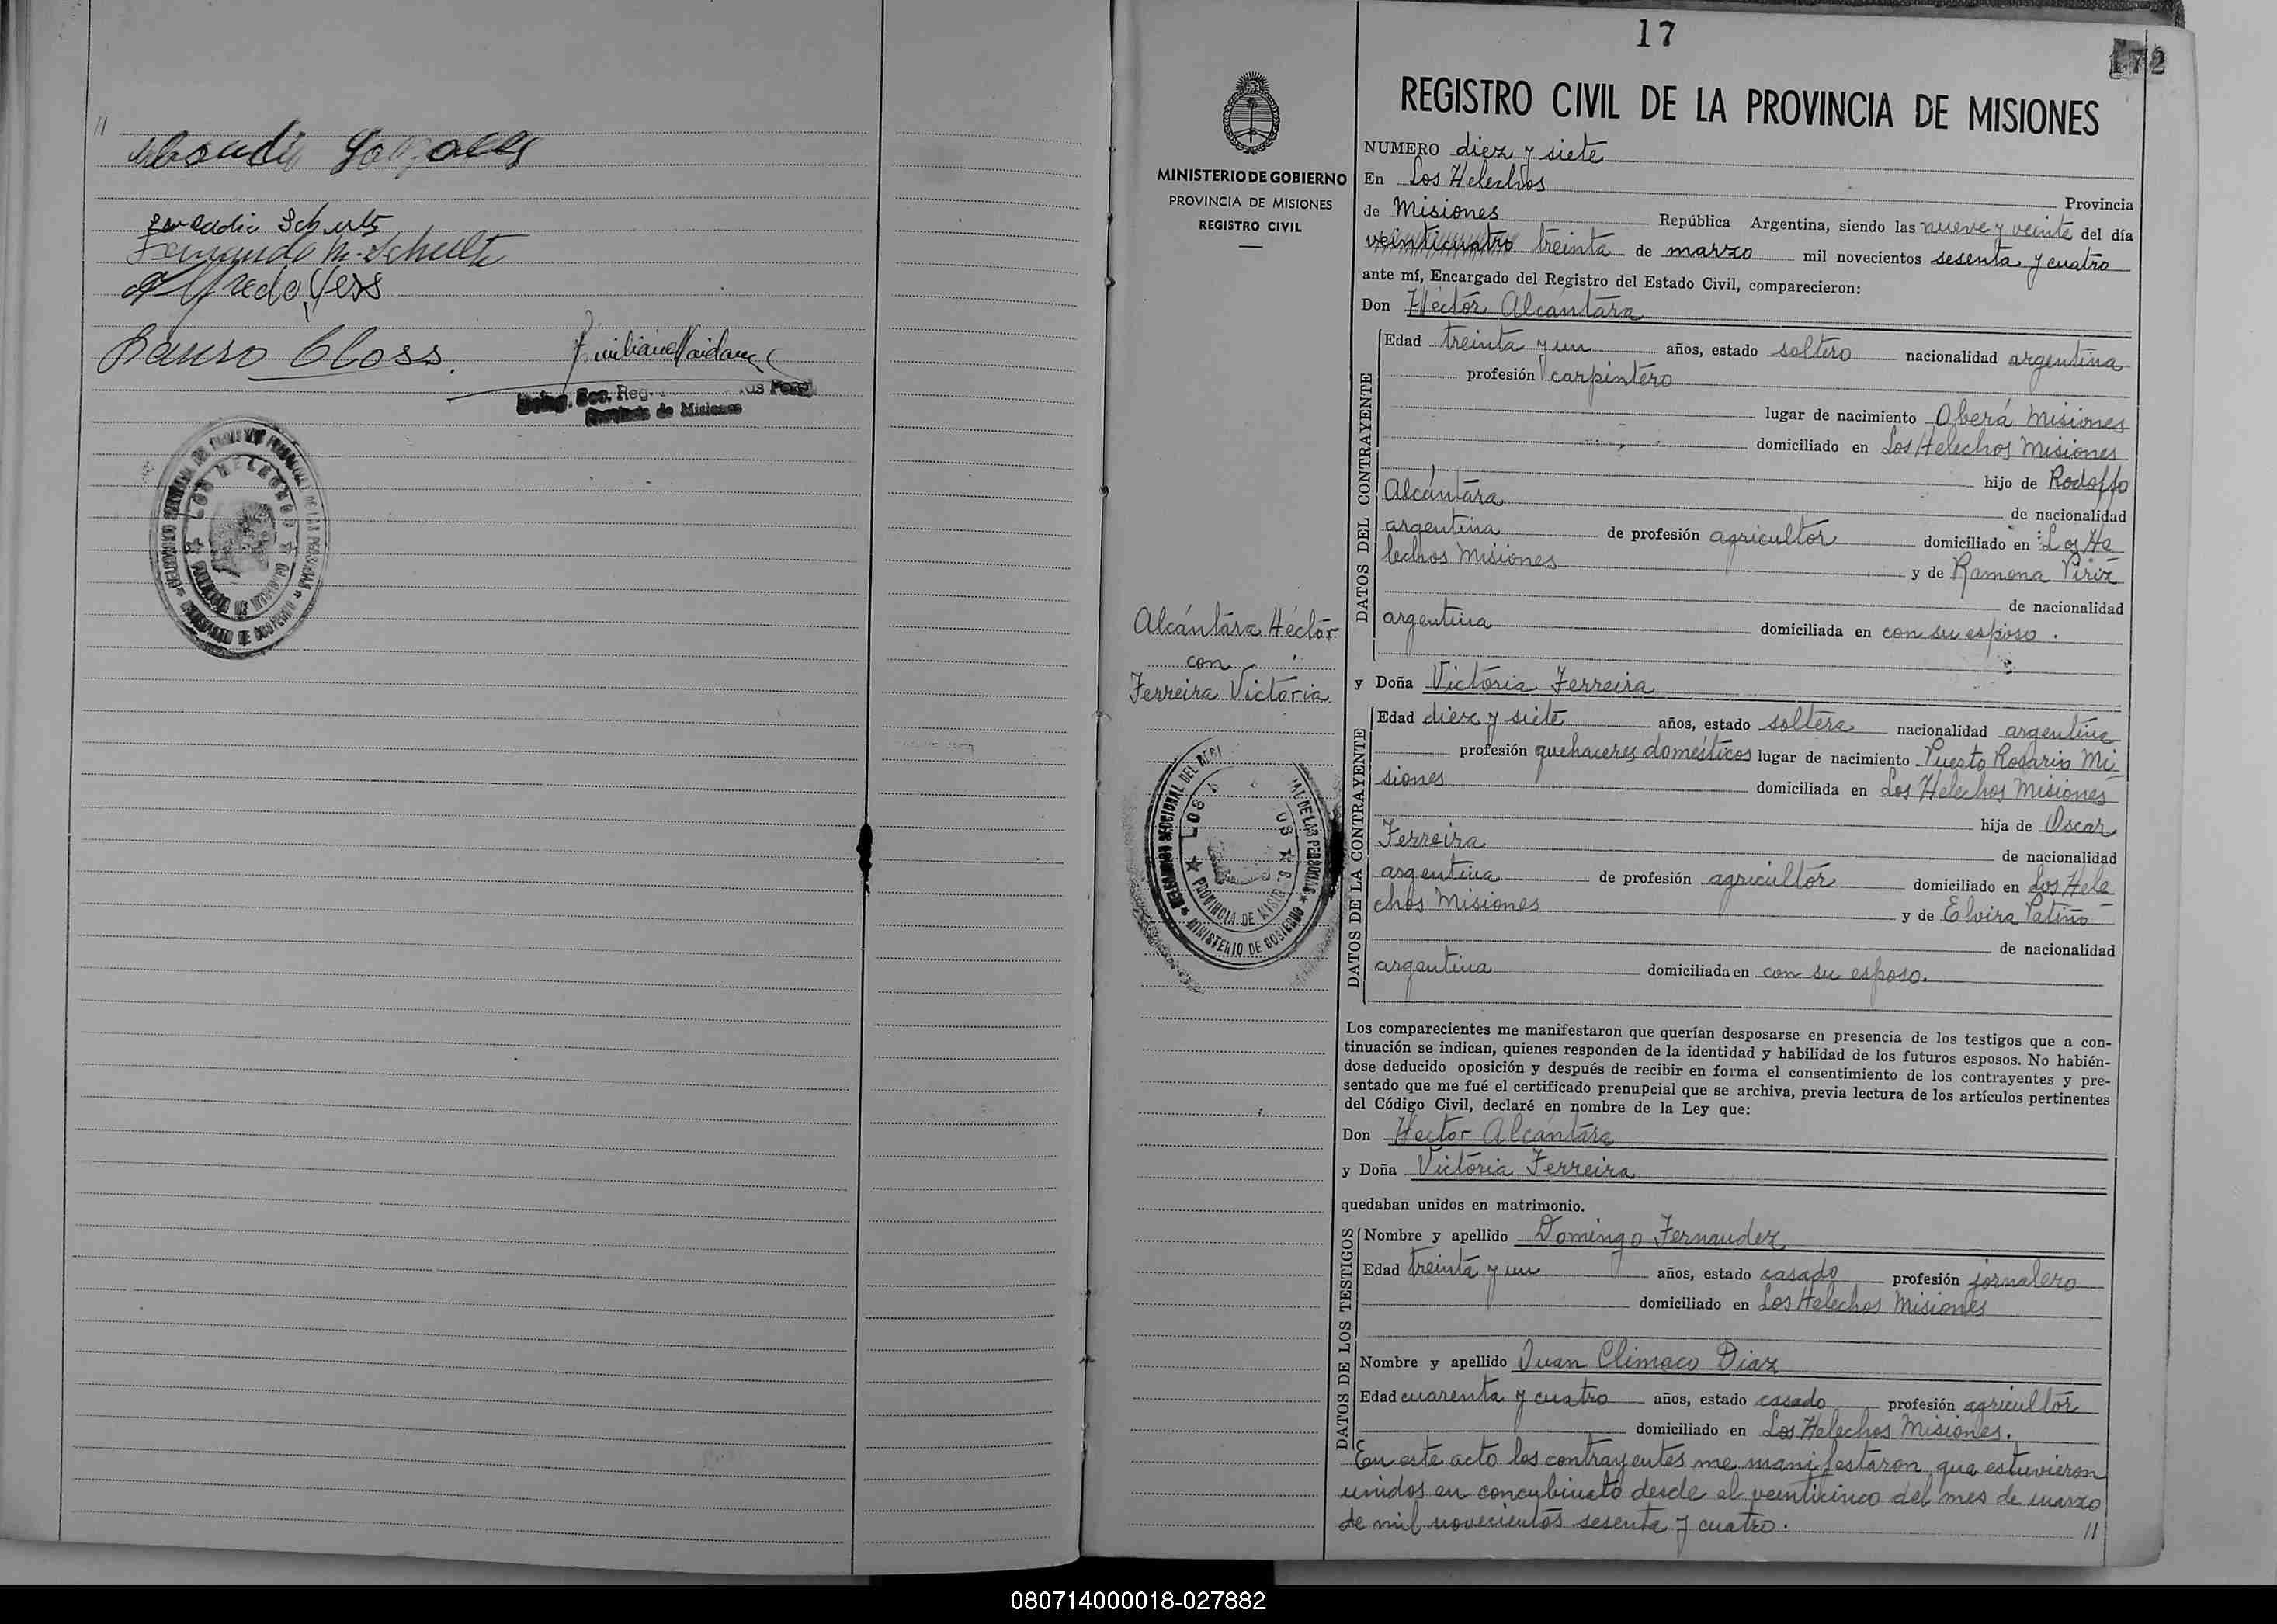 //
Schults
Fernando M. Schultz
Alfredo Yess
Lauro Closs.
Provincia de Misiones
LOS HELECHOS
17
172
REGISTRO CIVIL DE LA PROVINCIA DE MISIONES
MINISTERIO DE GOBIERNO
PROVINCIA DE MISIONES
REGISTRO CIVIL
NUMERO diez y siete
En Los Helechos Provincia
de Misiones República Argentina, siendo las nueve y veinte del día
veinticuatro treinta de marzo mil novecientos sesenta y cuatro
ante mí, Encargado del Registro del Estado Civil, comparecieron:
Don Héctor Alcántara
DATOS DEL CONTRAYENTE
Edad treinta y un años, estado soltero nacionalidad argentina
profesión carpintero
lugar de nacimiento Oberá Misiones
domiciliado en Los Helechos Misiones
hijo de Rodolfo
Alcántara de nacionalidad
argentina de profesión agricultor domiciliado en Los He
lechos Misiones y de Ramona Piriz
de nacionalidad
argentina domiciliada en con su esposo.
Alcántara Héctor
con
Ferreira Victoria
y Doña Victoria Ferreira
DATOS DE LA CONTRAYENTE
Edad diez y siete años, estado soltera nacionalidad argentina
profesión quehaceres domésticos lugar de nacimiento Puerto Rosario Mi
siones domiciliada en Los Helechos Misiones
hija de Oscar
Ferreira de nacionalidad
argentina de profesión agricultor domiciliado en Los Hele
chos Misiones y de Elvira Patiño
de nacionalidad
argentina domiciliada en con su esposo.
PROVINCIA DE MISIONES
MINISTERIO DE GOBIERNO
Los comparecientes me manifestaron que querían desposarse en presencia de los testigos que a con-
tinuación se indican, quienes responden de la identidad y habilidad de los futuros esposos. No habién-
dose deducido oposición y después de recibir en forma el consentimiento de los contrayentes y pre-
sentado que me fué el certificado prenupcial que se archiva, previa lectura de los artículos pertinentes
del Código Civil, declaré en nombre de la Ley que:
Don Hector Alcántara
y Doña Victoria Ferreira
quedaban unidos en matrimonio.
DATOS DE LOS TESTIGOS
Nombre y apellido Domingo Fernandez
Edad treinta y un años, estado casado profesión jornalero
domiciliado en Los Helechos Misiones
Nombre y apellido Juan Climaco Diaz
Edad cuarenta y cuatro años, estado casado profesión agricultor
domiciliado en Los Helechos Misiones.
En este acto los contrayentes me manifestaron que estuvieron
unidos en concubinato desde el veinticinco del mes de marzo
de mil novecientos sesenta y cuatro. //
080714000018-027882